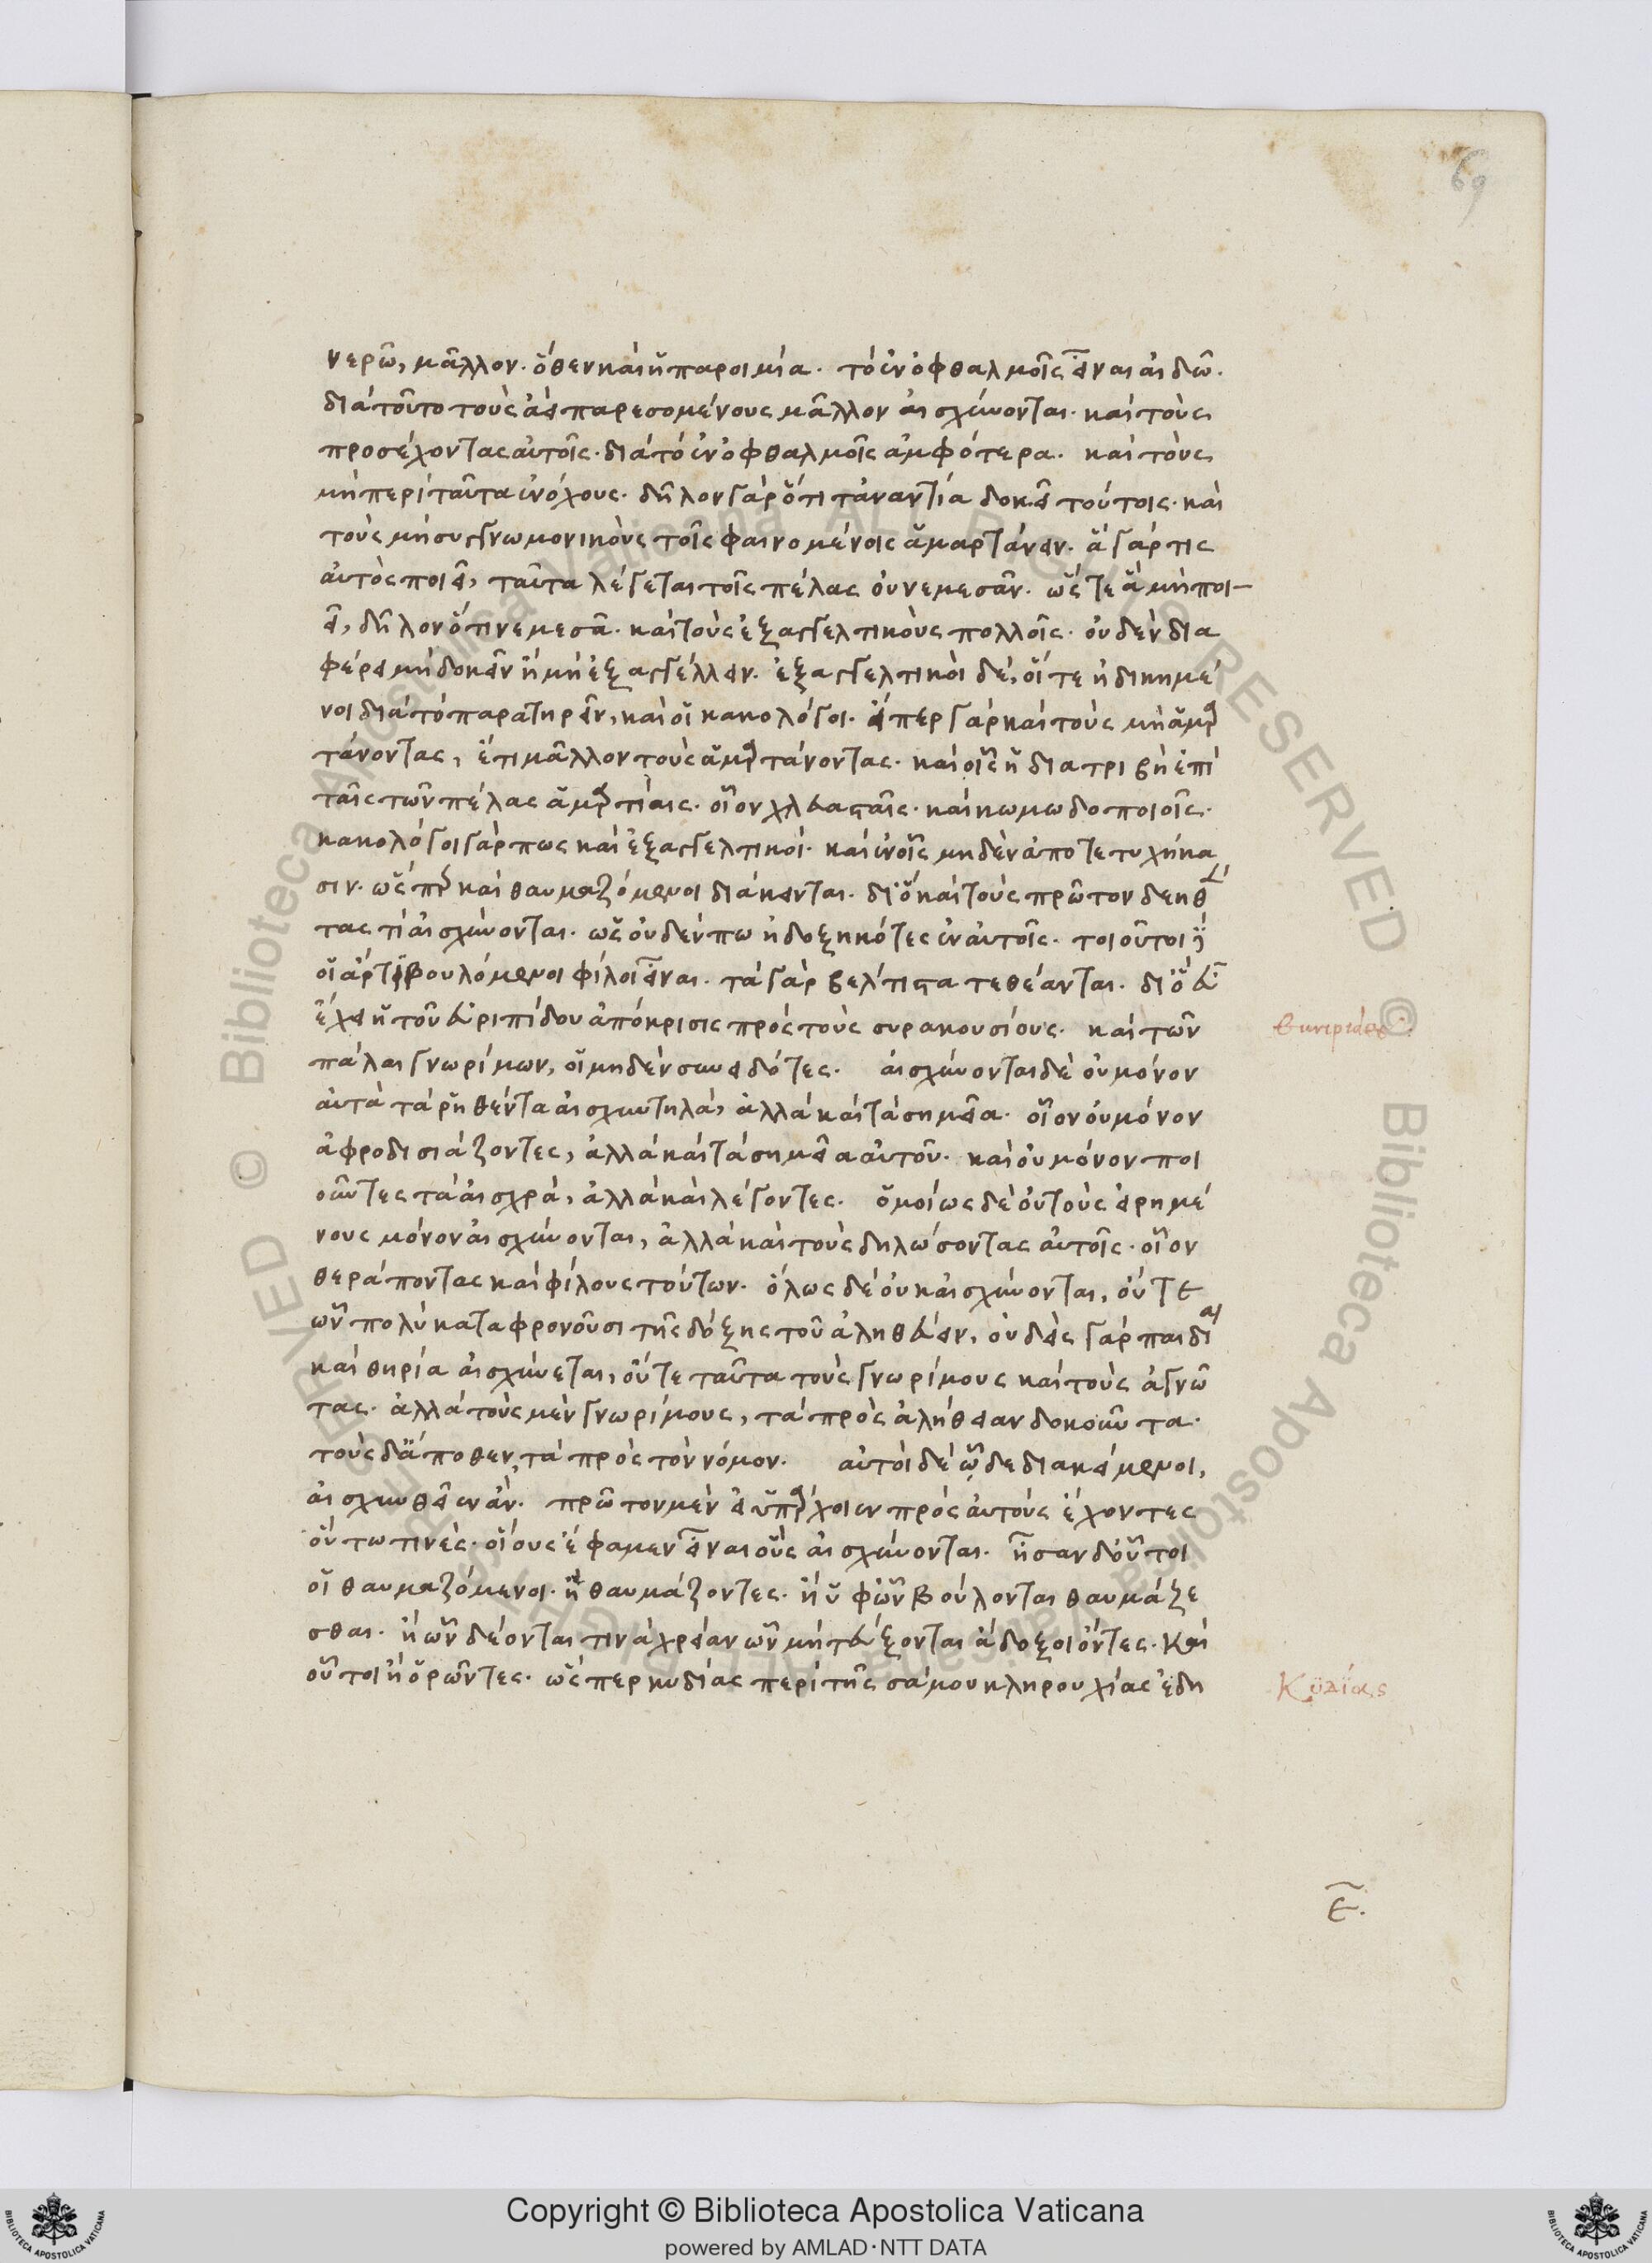 69
νερῶ, μᾶλλον. ὅθεν καὶ ἡ παροιμία. τὸ ἐν ὀφθαλμοῖς εἶναι αἰδῶ.
διὰ τοῦτο τοὺς ἀεὶ παρεσομένους μᾶλλον αἰσχύνονται. καὶ τοὺς
προσέχοντας αὐτοῖς. διὰ τὸ ἐν ὀφθαλμοῖς ἀμφότερα. καὶ τοὺς
μὴ περὶ ταῦτα ἐνόχους. δῆλον γὰρ ὅτι τἀναντία δοκεῖ τούτοις. καὶ
τοὺς μὴ συγγνωμονικοὺς τοῖς φαινομένοις ἁμαρτάνειν. ἃ γάρ τις
αὐτὸς ποιεῖ, ταῦτα λέγεται τοῖς πέλας οὐ νεμεσᾶν. ὥστε ἃ μὴ ποι-
εῖ, δῆλον ὅτι νεμεσᾶ. καὶ τοὺς ἐξαγγελτικοὺς πολλοῖς. οὐδὲν δια
φέρει μὴ δοκεῖν ἢ μὴ ἐξαγγέλλειν. ἐξαγγελτικοὶ δὲ, οἵ τε ἠδικημέ
νοι διὰ τὸ παρατηρεῖν, καὶ οἱ κακολόγοι. εἴπερ γὰρ καὶ τοὺς μὴ ἁμαρ
τάνοντας, ἔτι μᾶλλον τοὺς ἁμαρτάνοντας. καὶ οἷς ἡ διατριβὴ ἐπὶ
ταῖς τῶν πέλας ἁμαρτίαις. οἷον χλευασταῖς. καὶ κωμωδοποιοῖς.
κακολόγοι γάρ πως καὶ ἐξαγγελτικοί. καὶ ἐν οἷς μηδὲν ἀποτετυχήκα
σιν. ὥσπερ καὶ θαυμαζόμενοι διάκεινται. διὸ καὶ τοὺς πρῶτον δεηθέν
τας τὶ αἰσχύνονται. ὡς οὐδέν πω ἠδοξηκότες ἐν αὐτοῖς. τοιοῦτοι δὲ
οἱ ἄρτι βουλόμενοι φίλοι εἶναι. τὰ γὰρ βέλτιστα τεθέανται. διὸ εὖ
ἔχει ἡ τοῦ εὐριπίδου ἀπόκρισις πρὸς τοὺς συρακουσίους. καὶ τῶν
πάλαι γνωρίμων, οἱ μηδὲν συνειδότες. αἰσχύνονται δὲ οὐ μόνον
αὐτὰ τὰ ῥηθέντα αἰσχυντηλά, ἀλλὰ καὶ τὰ σημεῖα. οἷον οὐ μόνον
ἀφροδισιάζοντες, ἀλλὰ καὶ τὰ σημεῖα αὐτοῦ. καὶ οὐ μόνον ποι
οῦντες τὰ αἰσχρά, ἀλλὰ καὶ λέγοντες. ὁμοίως δὲ οὐ τοὺς εἰρημέ
νους μόνον αἰσχύνονται, ἀλλὰ καὶ τοὺς δηλώσοντας αὐτοῖς. οἷον
θεράποντας καὶ φίλους τούτων. ὅλως δὲ οὐκ αἰσχύνονται, οὔτε
ὧν πολὺ καταφρονοῦσι τῆς δόξης τοῦ ἀληθεύειν, οὐδεὶς γὰρ παιδία
καὶ θηρία αἰσχύνεται, οὔτε ταῦτα τοὺς γνωρίμους καὶ τοὺς ἀγνῶ
τας. ἀλλὰ τοὺς μὲν γνωρίμους, τὰ πρὸς ἀλήθειαν δοκοῦντα.
τοὺς δ' ἄποθεν, τὰ πρὸς τὸν νόμον. αὐτοὶ δὲ ὧδε διακείμενοι,
αἰσχυνθεῖεν ἄν. πρῶτον μὲν εἰ ὑπάρχοιεν πρὸς αὐτοὺς ἔχοντες
οὕτω τινὲς. οἵους ἔφαμεν εἶναι οὓς αἰσχύνονται. ἦσαν δ' οὗτοι
οἱ θαυμαζόμενοι. ἢ θαυμάζοντες. ἢ ὑφ' ὧν βούλονται θαυμάζε
σθαι. ἢ ὧν δέονται τινὰ χρείαν ὧν μὴ τεύξονται ἄδοξοι ὄντες. καὶ
οὗτοι ἢ ὁρῶντες. ὥσπερ κυδίας περὶ τῆς σάμου κληρουχίας ἐδη
Κυδίας
ε.
Copyright © Biblioteca Apostolica Vaticana
powered by AMLAD·NTT DATA